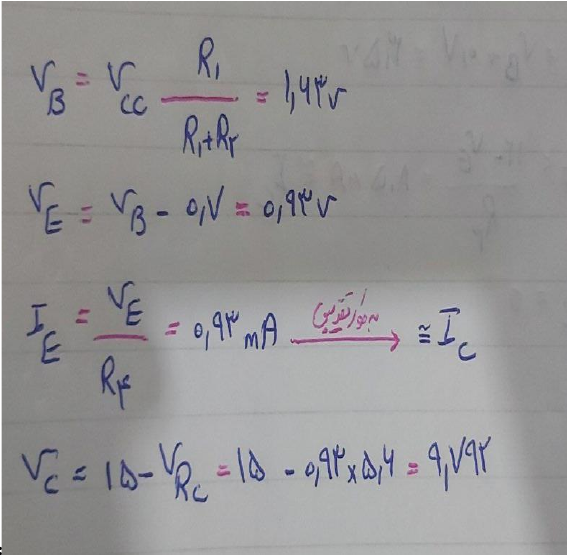 V_B = V_CC R₁/(R₁+R_۲) = ۱,۶۳v
V_E = V_B - ۰,۷ = ۰,۹۳v
I_E = V_E/R_۴ = ۰,۹۳ mA به طور تقریبی → ≅ I_C
V_C = ۱۵ - V_RC = ۱۵ - ۰,۹۳ × ۵,۶ = ۹,۷۹۲